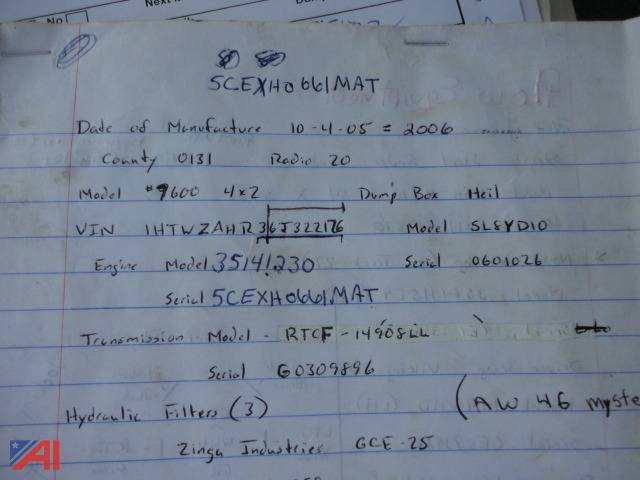 No
Next
5CEXH0661MAT
Date of Manufacture 10-4-05 = 2006
County 0131 Radio 20
Model #7600 4x2 Dump Box Heil
VIN 1HTWZAHR36J322176 Model SL8YD10
Engine Model 35141.230 Serial 0601026
Serial 5CEXH0661MAT
Transmission Model - RTCF - 14908LL
Serial G0309896
Hydraulic Filters (3) (AW 46 myste
Zinga Industries GCE-25
AI